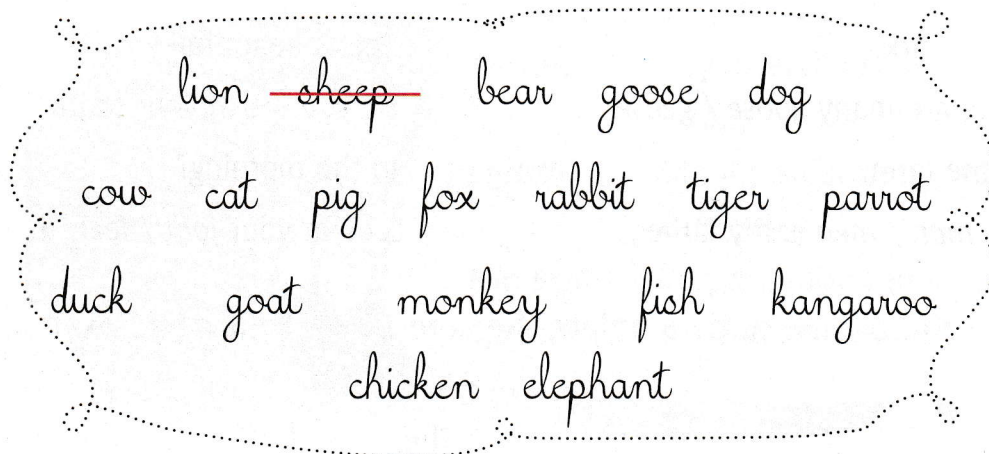 lion sheep bear goose dog
cow cat pig fox rabbit tiger parrot
duck goat monkey fish kangaroo
chicken elephant